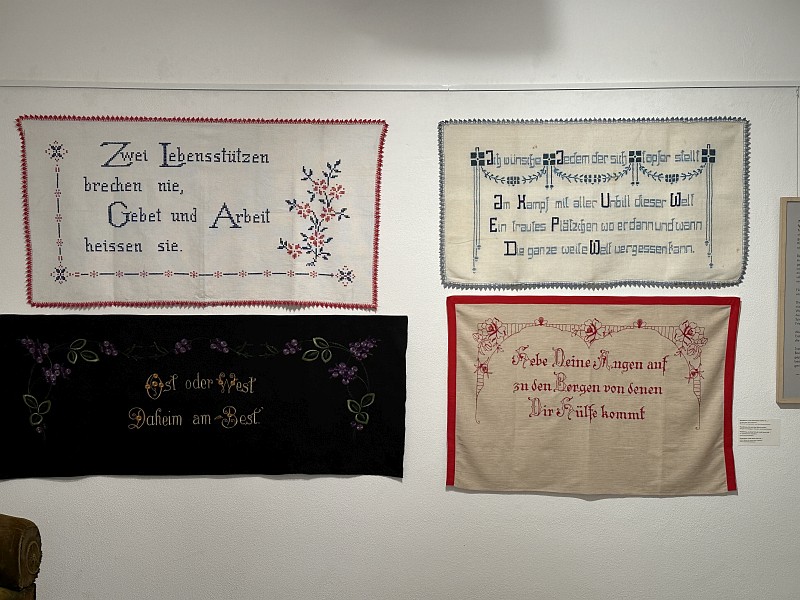 Zwei Lebensstützen
brechen nie,
Gebet und Arbeit
heissen sie.
Ich wünsche Jedem der sich tapfer stellt
Im Kampf mit aller Unbill dieser Welt
Ein trautes Plätzchen wo er dann und wann
Die ganze weite Welt vergessen kann.
Ost oder West
Daheim am Best.
Hebe Deine Augen auf
zu den Bergen von denen
Dir Hülfe kommt